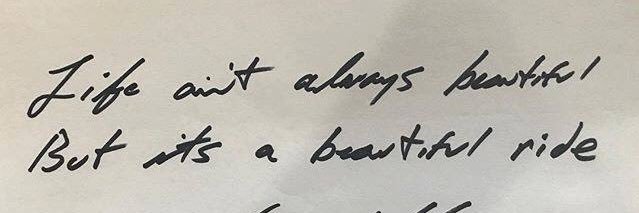 Life ain't always beautiful
But it's a beautiful ride